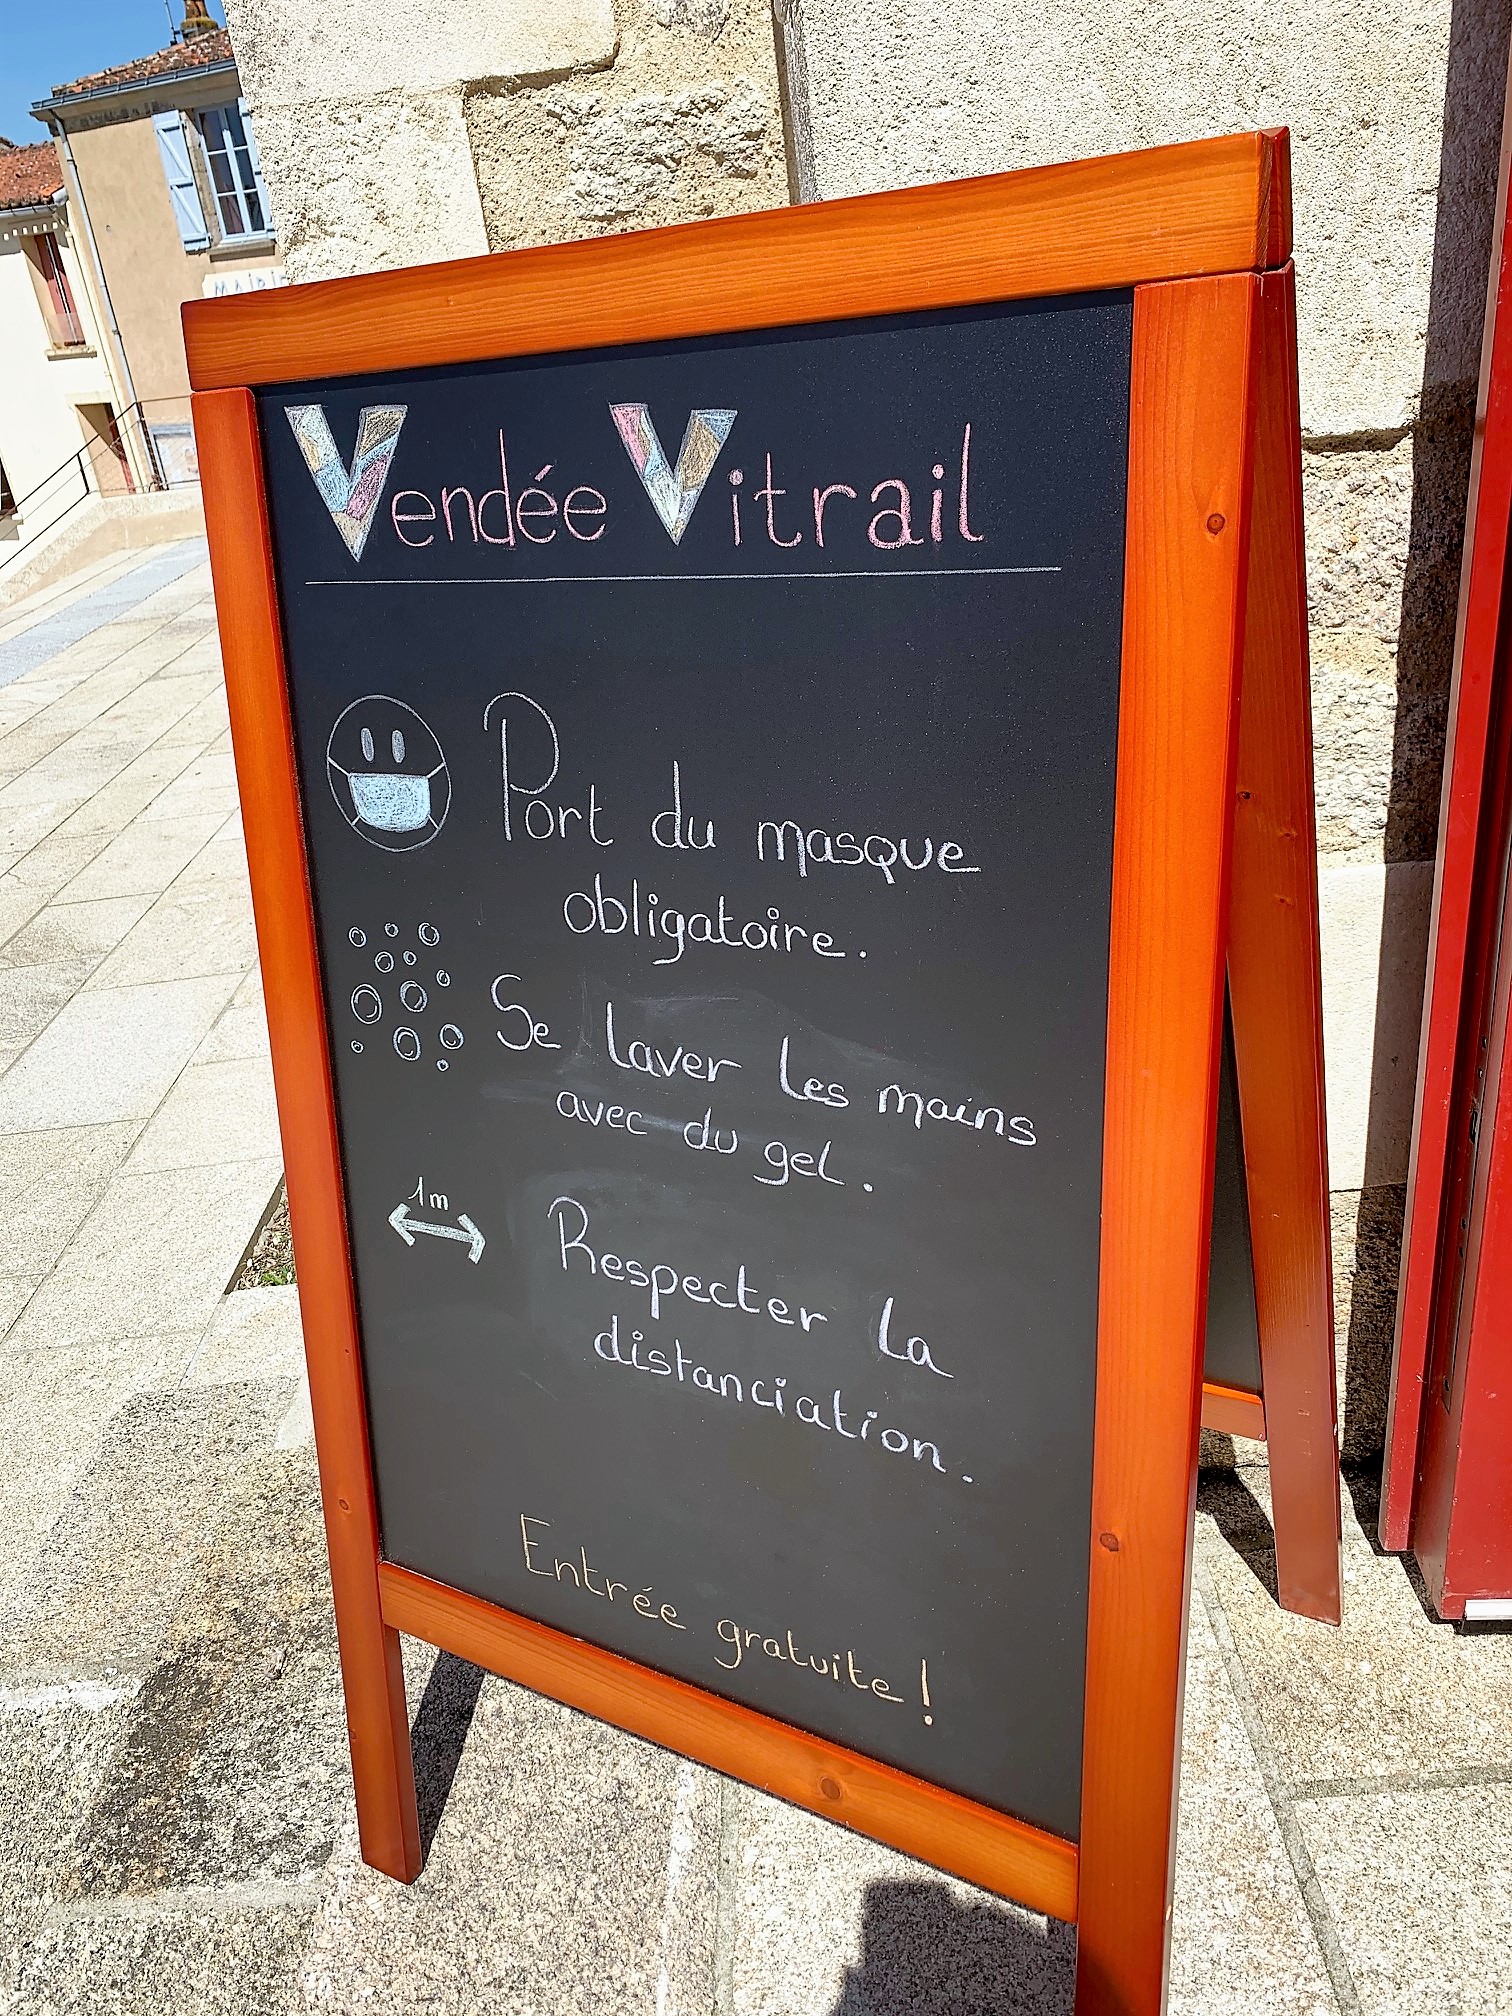 MAIRIE
Vendée Vitrail
Port du masque
obligatoire.
Se laver les mains
avec du gel.
1m
Respecter la
distanciation.
Entrée gratuite !